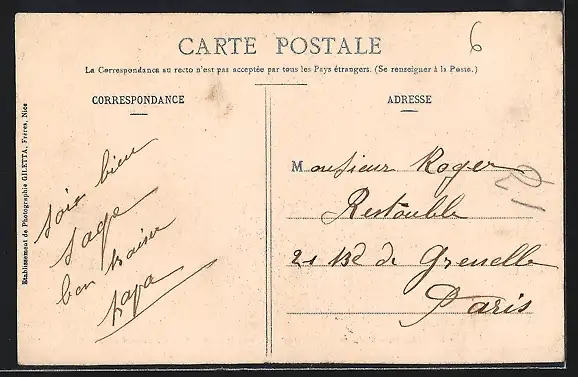 6
CARTE POSTALE
La Correspondance au recto n'est pas acceptée par tous les Pays étrangers. (Se renseigner à la Poste.)
CORRESPONDANCE
ADRESSE
Etablissement de Photographie GILETTA, Frères, Nice
Sois bien
sage
bon baiser
papa
Monsieur Roger
Restouble
21 Bd de Grenelle
Paris
21